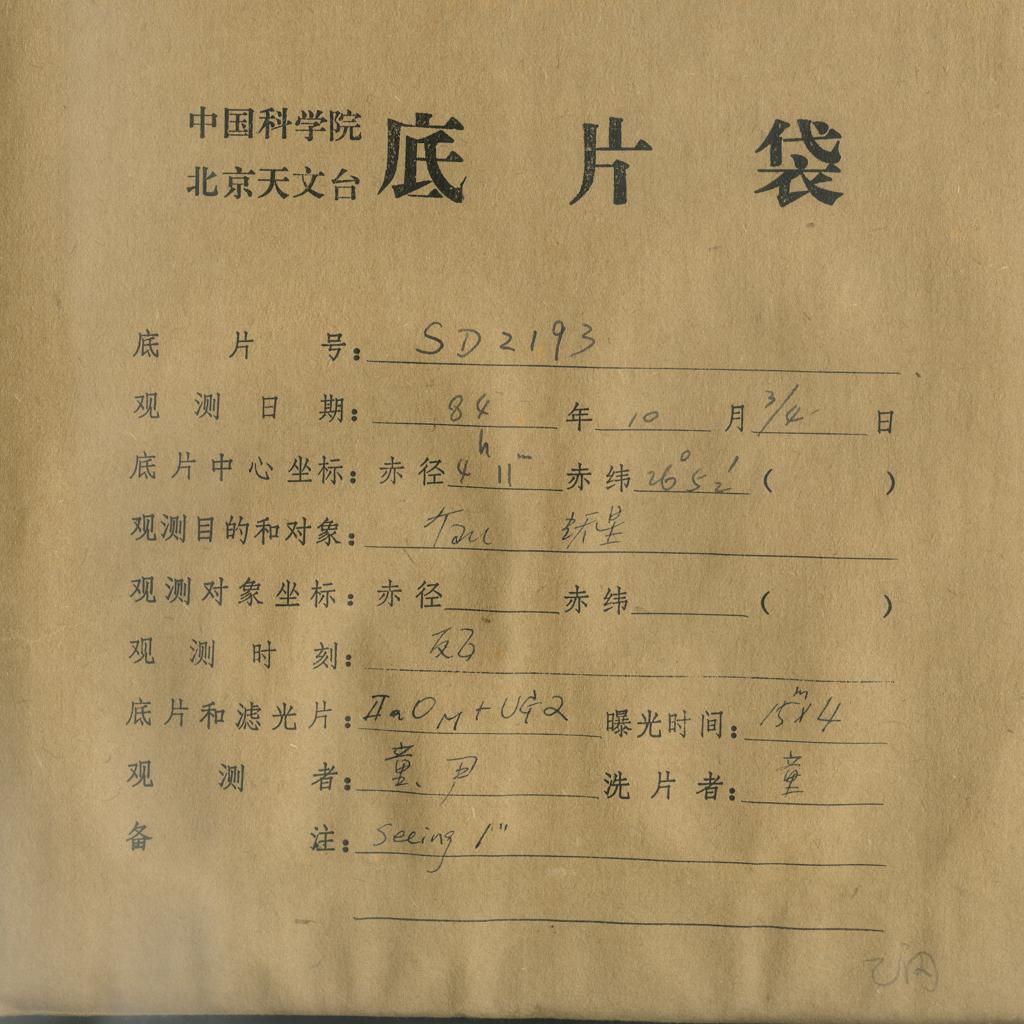 中国科学院
北京天文台 底片袋
底片号: SD2193
观测日期: 84年10月3/4日
底片中心坐标: 赤径4h11m 赤纬26°52′( )
观测目的和对象: Tau 妖星
观测对象坐标: 赤径 赤纬 ( )
观测时刻:
底片和滤光片: IIaOM+UG2 曝光时间: 15m×4
观测者: 童、尹 洗片者: 童
备注: Seeing 1"